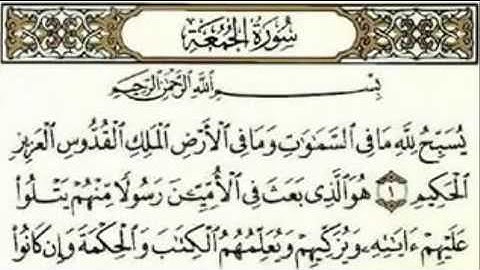 سُورَةُ الْجُمُعَةِ
بِسْمِ اللَّهِ الرَّحْمَٰنِ الرَّحِيمِ
يُسَبِّحُ لِلَّهِ مَا فِي السَّمَٰوَٰتِ وَمَا فِي الْأَرْضِ الْمَلِكِ الْقُدُّوسِ الْعَزِيزِ
الْحَكِيمِ ١ هُوَ الَّذِي بَعَثَ فِي الْأُمِّيِّـۧنَ رَسُولًا مِّنْهُمْ يَتْلُوا
عَلَيْهِمْ ءَايَٰتِهِۦ وَيُزَكِّيهِمْ وَيُعَلِّمُهُمُ الْكِتَٰبَ وَالْحِكْمَةَ وَإِن كَانُوا